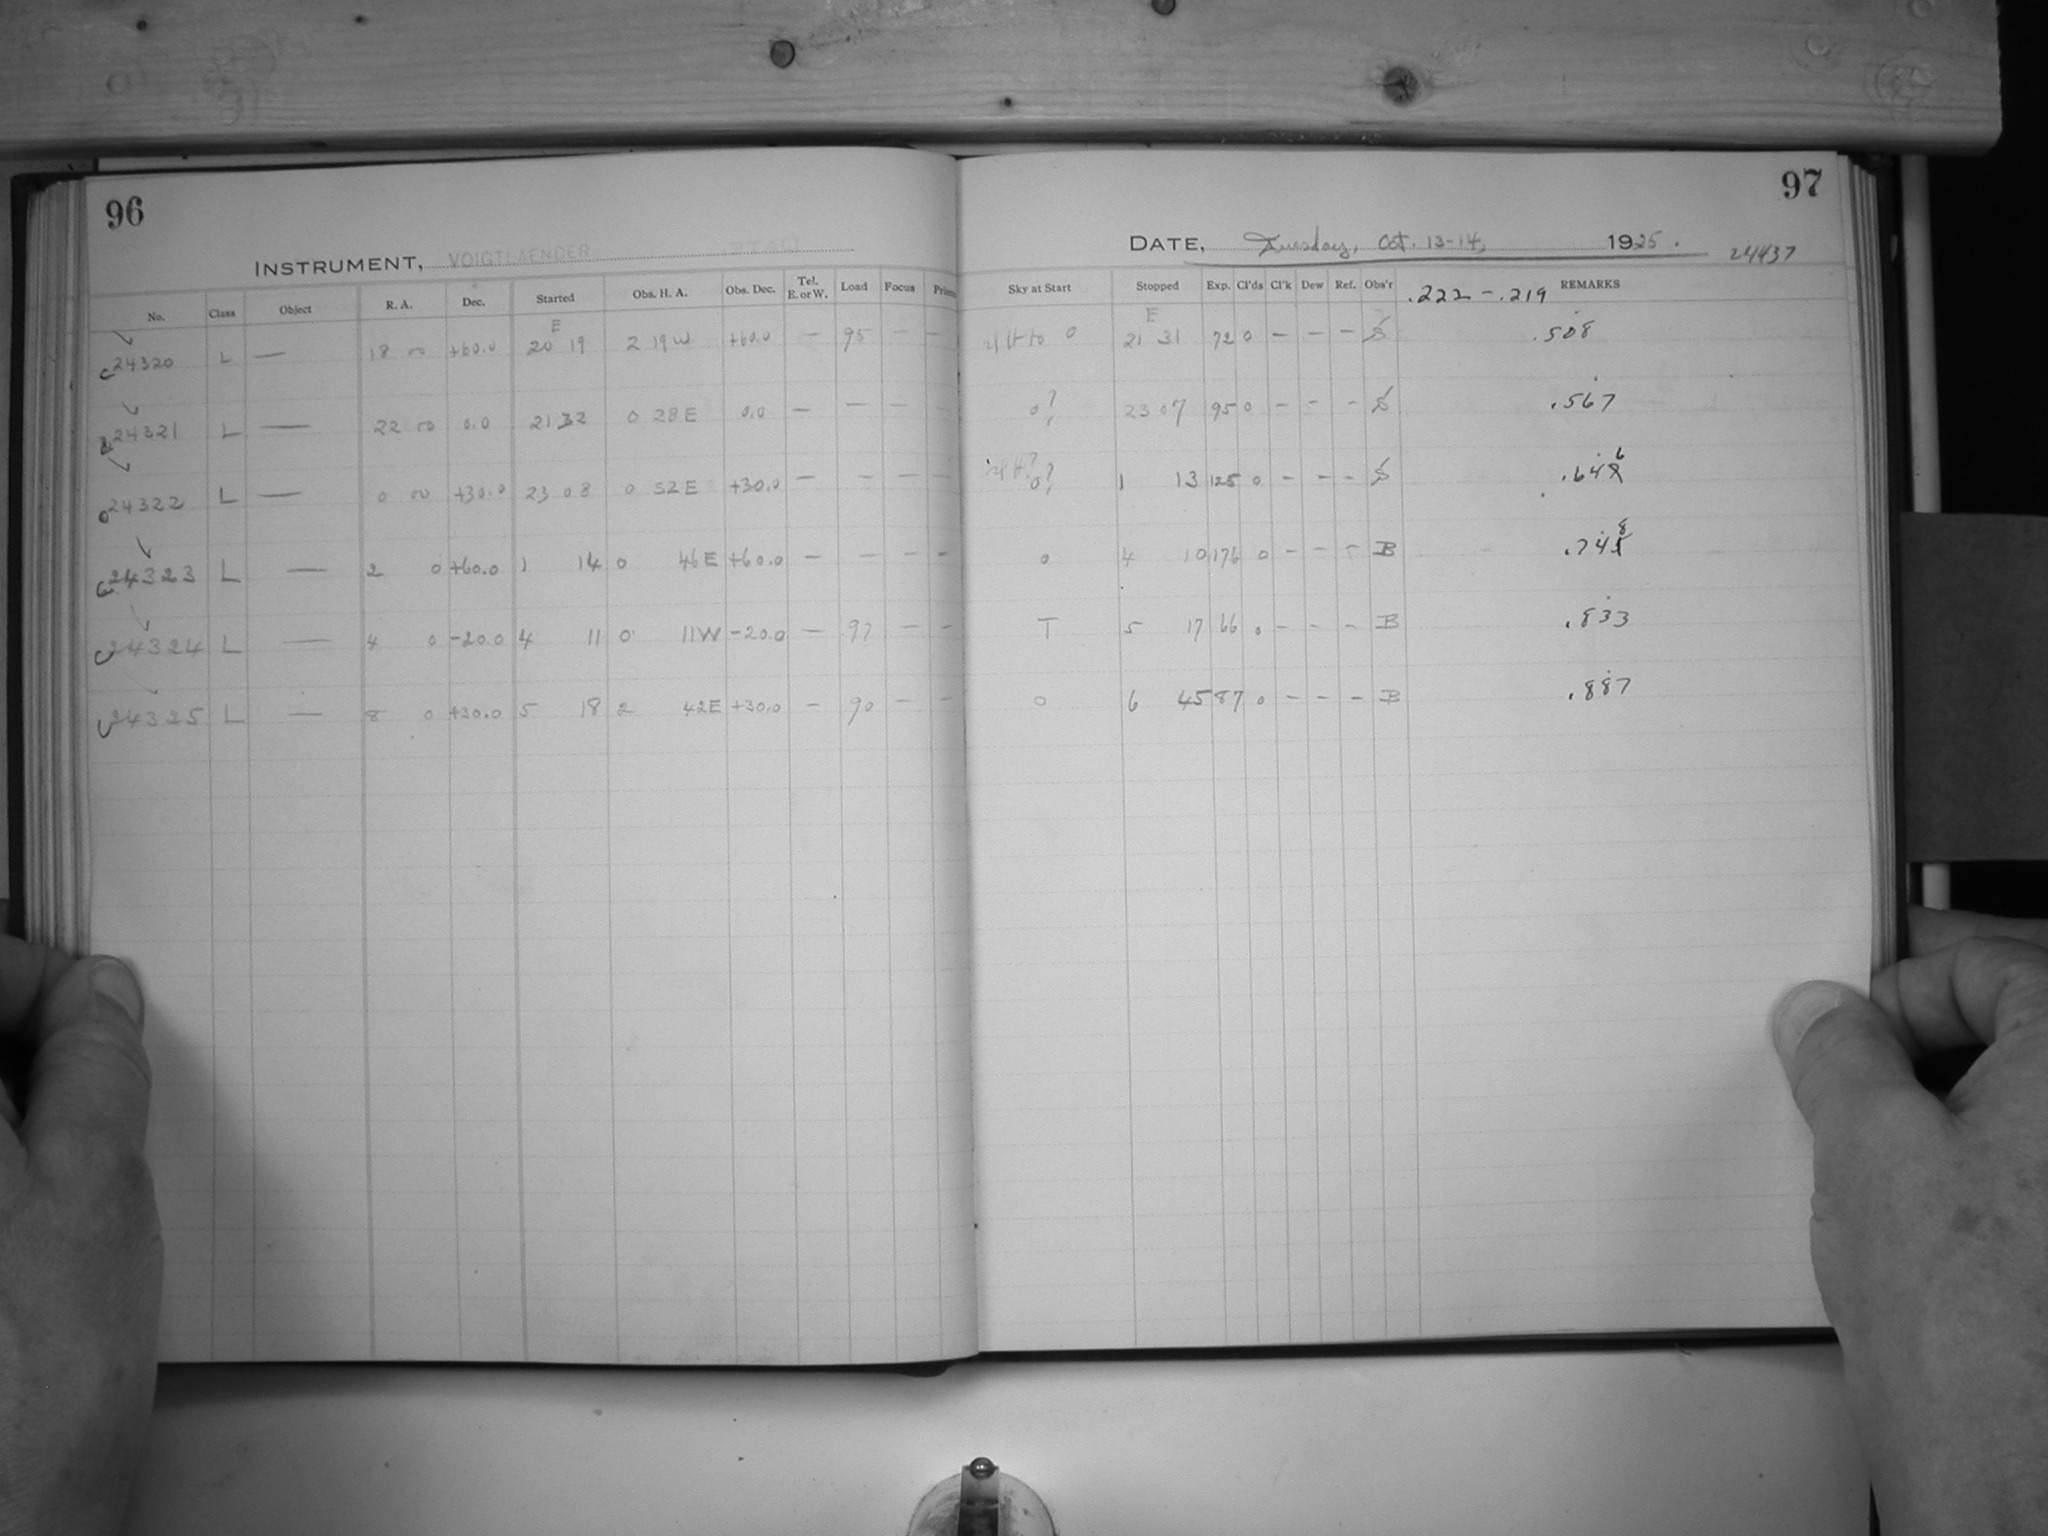 96
INSTRUMENT, VOIGTLAENDER
No. Class Object R. A. Dec. Started Obs. H. A. Obs. Dec. Tel. E. or W. Load Focus Prism
E
24320 L — 18 00 +60.0 20 19 2 19 W +60.0 — 95 — —
24321 L — 22 00 0.0 21 32 0 28 E 0.0 — — — —
24322 L — 0 00 +30.0 23 08 0 52 E +30.0 — — — —
24323 L — 2 0 +60.0 1 14 0 46 E +60.0 — — — —
24324 L — 4 0 -20.0 4 11 0 11 W -20.0 — 97 — —
24325 L — 8 0 +30.0 5 18 2 42 E +30.0 — 90 — —
97
DATE, Tuesday, Oct. 13-14, 1925.
24437
Sky at Start Stopped Exp. Cl'ds Cl'k Dew Ref. Obs'r REMARKS
.222 - .219
E
to 0 21 31 72 0 — — — S .508
0? 23 07 95 0 — — — S .567
0? 1 13 125 0 — — — S .646
0 4 10 176 0 — — — B .748
T 5 17 66 0 — — — B .833
0 6 45 87 0 — — — B .887